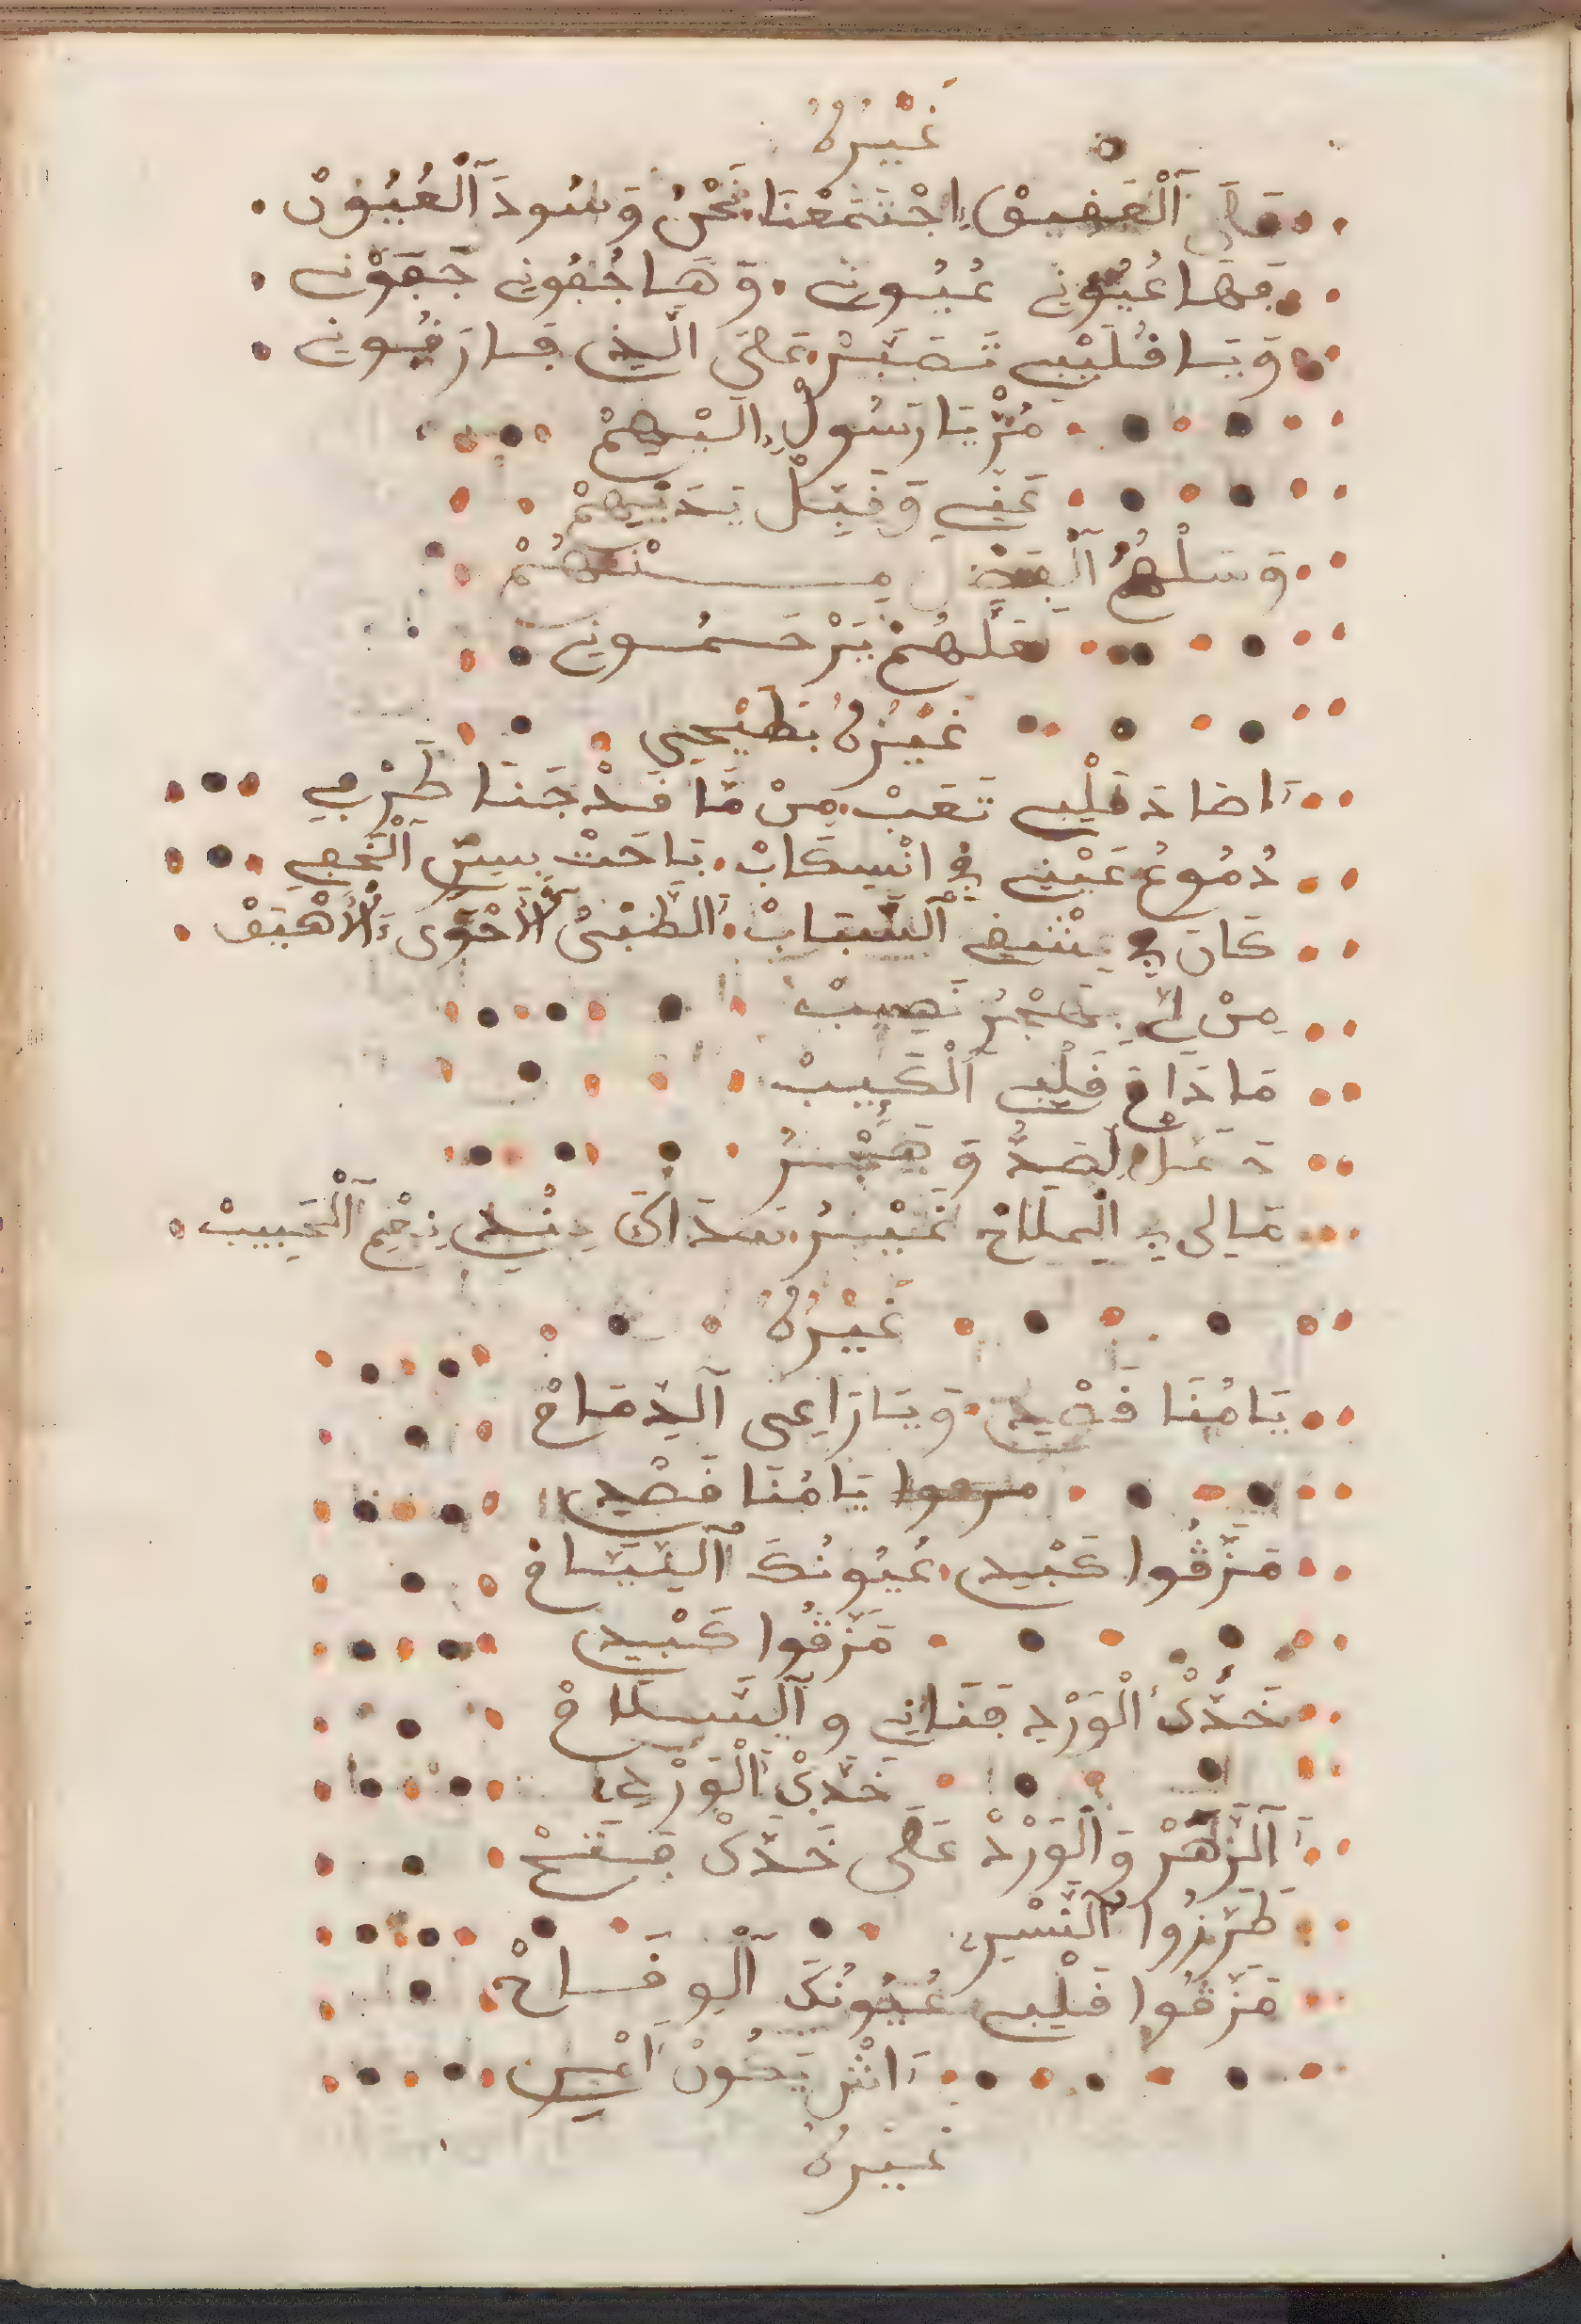 غَيْرُهُ
عَلَى ٱلْعَقِيقْ إِجْتَمَعْنَا نَحْنُ وَسُودَ ٱلْعُيُونْ
فَهَا عُيُونِي عُيُونِي وَهَا جُفُونِي جَفَوْنِي
وَيَا قُلَيْبِي تَصَبَّرْ عَلَى الَّذِي فَارَقُونِي
مُرْ يَا رَسُولْ إِلَيْهِمْ
عَنِّي وَقَبِّلْ يَدَيْهِمْ
وَسَلْهُمُ ٱلْفَضْلَ مِنْهُمْ
عَلَّهُمْ يَرْحَمُونِي
غَيْرُهُ بَطَيْحِي
اَضَا دَ قَلْبِي تَعَبْ مِنْ مَّا قَدْ جَنَا طَرْفِي
دُمُوعُ عَيْنِي فِي انْسِكَابْ بَاحَتْ بِسِرِّ ٱلْخَفِي
كَانَ فِي عِشْقِي ٱلشَّبَابْ اَلظَّبْيُ ٱلْأَحْوَى ٱلْأَهْيَفْ
مِنْ لِّي بِهَجْرُ نَصِيبْ
مَا ذَاقَ قَلْبِي ٱلْكَئِيبْ
دَعَلْ لِصَدُّ وَهَجْرُ
مَالِي فِي الْمِلَاحْ غَيْرُ بَعْدَ اكَ عِنْدِي نِعْمَ ٱلْحَبِيبْ
غَيْرُهُ
يَا مُنَا قَصْدِي وَيَا رَاعِي ٱلدِّمَاحْ
يَا مُنَا قَصْدِي
مَزَّقُوا كَبْدِي عُيُونُكَ ٱلنِّيَّاحْ
مَزَّقُوا كَبْدِي
خَدُّكْ ٱلْوَرْدِ فَنَانِي وٱلسِّلَاحْ
خَدُّكْ ٱلْوَرْدِي
اَلزَّهْرْ وَٱلْوَرْدْ عَلَى خَدُّكْ فَتَّحْ
طَرَّزُوا ٱلنَّسْرِي
مَزَّقُوا قَلْبِي عُيُونُكَ ٱلْوِقَاحْ
اَشْ يَكُونْ اَعْمِل
غَيْرُهُ